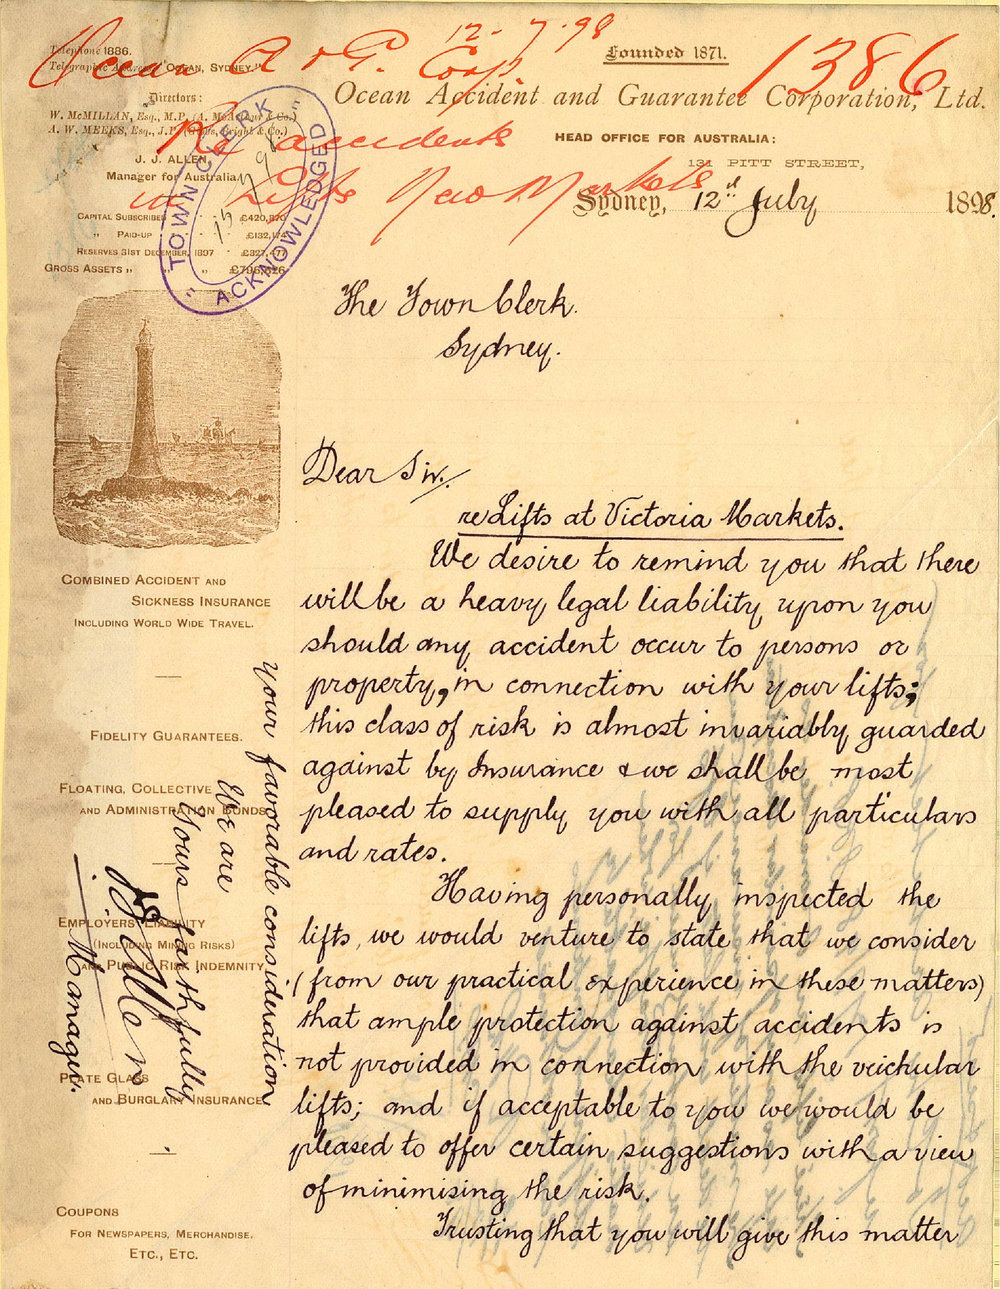 12-7-98
1386
Ocean A & G. Corp.
Re accidents
in Lifts New Markets
Telephone 1886.
Telegraphic Address "Ocean, Sydney."
Directors:
W. McMILLAN, Esq., M.P. (A. McArthur & Co.)
A. W. MEEKS, Esq., J.P. (Gibbs, Bright & Co.)
J. J. ALLEN,
Manager for Australia
Capital Subscribed £420,870
" Paid-up £132,174
Reserves 31st December, 1897 £327,
Gross Assets " " £798,626
"TOWN CLERK"
"ACKNOWLEDGED
Founded 1871.
Ocean Accident and Guarantee Corporation, Ltd.
HEAD OFFICE FOR AUSTRALIA:
131 PITT STREET,
Sydney, 12th July 1898.
The Town Clerk.
Sydney.
Dear Sir/.
re Lifts at Victoria Markets.
We desire to remind you that there
will be a heavy legal liability upon you
should any accident occur to persons or
property, in connection with your lifts;
this class of risk is almost invariably guarded
against by Insurance & we shall be most
pleased to supply you with all particulars
and rates.
Having personally inspected the
lifts, we would venture to state that we consider
(from our practical experience in these matters)
that ample protection against accidents is
not provided in connection with the veichular
lifts; and if acceptable to you we would be
pleased to offer certain suggestions with a view
of minimising the risk.
Trusting that you will give this matter
your favorable consideration
We are
Yours faithfully
J J Allen
Manager.
Combined Accident and
Sickness Insurance
Including World Wide Travel.
Fidelity Guarantees.
Floating, Collective
and Administration Bonds
Employers Liability
(Including Mining Risks)
and Public Risk Indemnity
Plate Glass
and Burglary Insurance
Coupons
For Newspapers, Merchandise.
Etc., Etc.